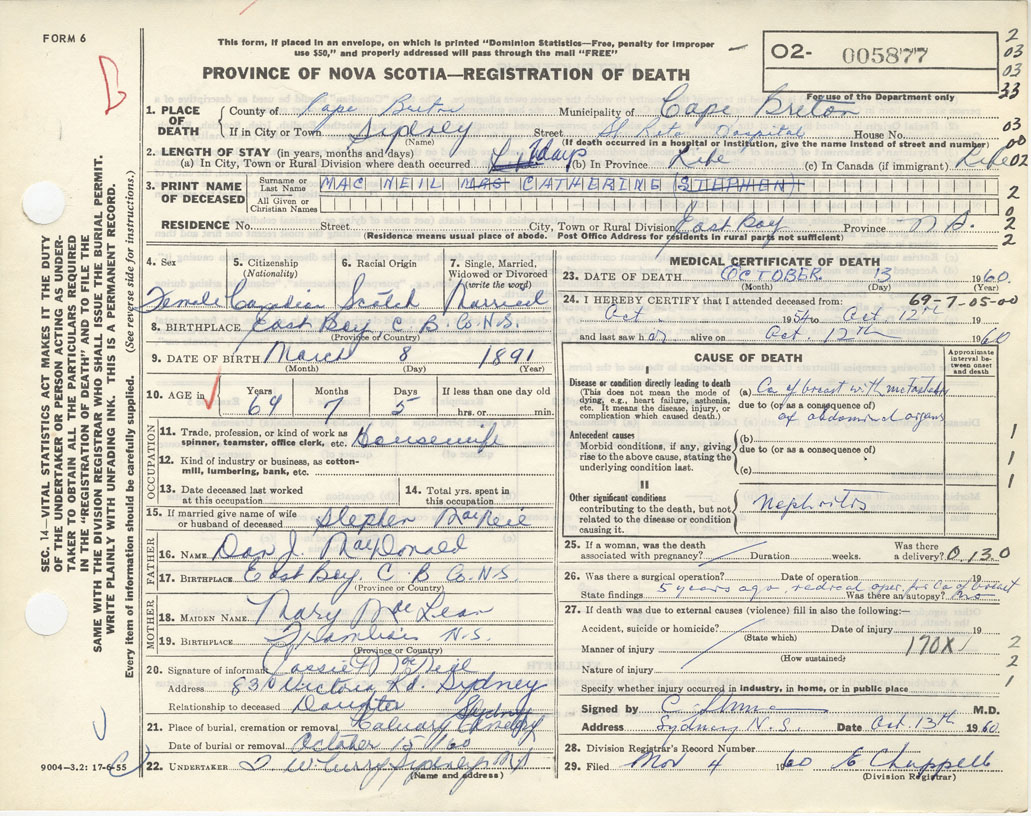 FORM 6
This form, if placed in an envelope, on which is printed "Dominion Statistics—Free, penalty for improper
use $50," and properly addressed will pass through the mail "FREE"
PROVINCE OF NOVA SCOTIA—REGISTRATION OF DEATH
02- 005877
For use of the Department only
2
03
03
33
03
00
02
2
0
2
2
1. PLACE OF DEATH
County of Cape Breton Municipality of Cape Breton
If in City or Town Sydney Street St Rita Hospital House No.
(Name) (If death occurred in a hospital or Institution, give the name instead of street and number)
2. LENGTH OF STAY (in years, months and days)
(a) In City, Town or Rural Division where death occurred days (b) In Province Life (c) In Canada (if immigrant) Life
3. PRINT NAME OF DECEASED
Surname or Last Name MAC NEIL MRS CATHERINE (STEPHEN)
All Given or Christian Names
RESIDENCE No. Street City, Town or Rural Division East Bay Province N S.
(Residence means usual place of abode. Post Office Address for residents in rural parts not sufficient)
SEC. 14—VITAL STATISTICS ACT MAKES IT THE DUTY
OF THE UNDERTAKER OR PERSON ACTING AS UNDER-
TAKER TO OBTAIN ALL THE PARTICULARS REQUIRED
IN THE "REGISTRATION OF DEATH" AND FILE THE
SAME WITH THE DIVISION REGISTRAR WHO SHALL ISSUE THE BURIAL PERMIT.
WRITE PLAINLY WITH UNFADING INK. THIS IS A PERMANENT RECORD.
Every item of information should be carefully supplied. (See reverse side for instructions.)
4. Sex 5. Citizenship (Nationality) 6. Racial Origin 7. Single, Married, Widowed or Divorced (write the word)
Female Canadian Scotch Married
8. BIRTHPLACE East Bay C. B. Co. N.S.
(Province or Country)
9. DATE OF BIRTH March 8 1891
(Month) (Day) (Year)
10. AGE in Years Months Days If less than one day old
69 7 5 hrs. or min.
OCCUPATION
11. Trade, profession, or kind of work as
spinner, teamster, office clerk, etc. Housewife
12. Kind of industry or business, as cotton-
mill, lumbering, bank, etc.
13. Date deceased last worked
at this occupation
14. Total yrs. spent in
this occupation
15. If married give name of wife
or husband of deceased Stephen MacNeil
FATHER
16. NAME Dan J. MacDonald
17. BIRTHPLACE East Bay. C. B Co. N.S
(Province or Country)
MOTHER
18. MAIDEN NAME Mary MacLean
19. BIRTHPLACE N.S.
(Province or Country)
20. Signature of informant Cassie MacNeil
Address 830 Victoria Rd. Sydney
Relationship to deceased Daughter
21. Place of burial, cremation or removal Calvary Cemetery Sydney
Date of burial or removal October 15 /60
22. UNDERTAKER T. W. Curry Sydney N S
(Name and address)
9004-3.2: 17-6-55
MEDICAL CERTIFICATE OF DEATH
23. DATE OF DEATH OCTOBER 13 1960.
(Month) (Day) (Year)
24. I HEREBY CERTIFY that I attended deceased from: 69-7-05-00
Oct. 1954 to Oct. 12th 19
and last saw h er alive on Oct. 12th 1960
CAUSE OF DEATH
Approximate interval between onset and death
I
Disease or condition directly leading to death
(This does not mean the mode of
dying, e.g., heart failure, asthenia,
etc. It means the disease, injury, or
complication which caused death.)
(a) Ca of breast with metastases
due to (or as a consequence of)
of abdominal organs
Antecedent causes
Morbid conditions, if any, giving
rise to the above cause, stating the
underlying condition last.
(b)
due to (or as a consequence of)
(c)
1
1
1
II
Other significant conditions
contributing to the death, but not
related to the disease or condition
causing it.
Nephritis
25. If a woman, was the death
associated with pregnancy? Duration weeks. Was there a delivery? 0 13.0
26. Was there a surgical operation? Date of operation 19
5 years ago, radical oper. for Ca of breast
State findings Was there an autopsy? no
27. If death was due to external causes (violence) fill in also the following:—
Accident, suicide or homicide? Date of injury 19
(State which)
Manner of injury 170X
(How sustained)
Nature of injury
2
2
1
Specify whether injury occurred in industry, in home, or in public place
Signed by M.D.
Address Sydney N.S. Date Oct. 13th 1960.
28. Division Registrar's Record Number
29. Filed Nov 4 1960 E Chappell
(Division Registrar)